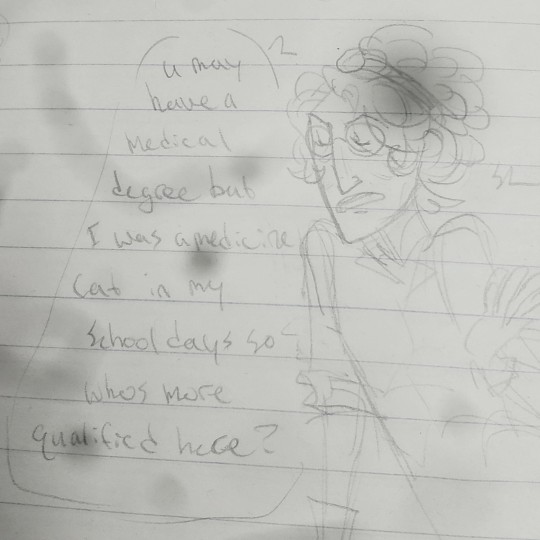 u may
have a
medical
degree but
I was a medicine
cat in my
school days so
whos more
qualified here?